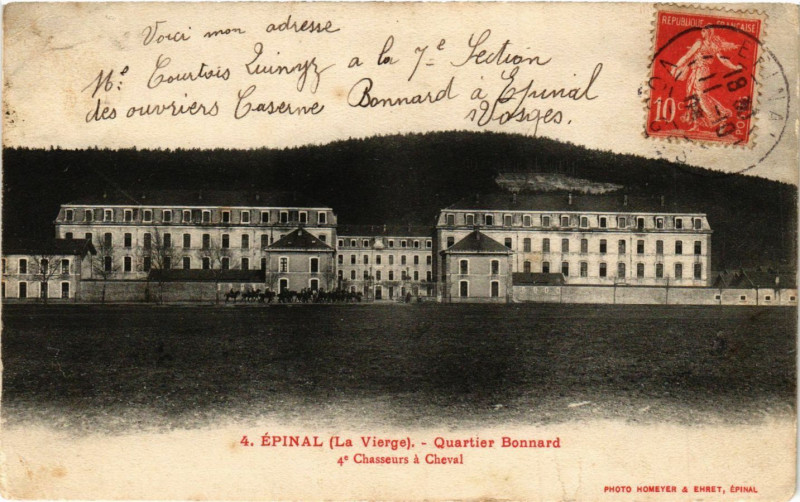 Voici mon adresse
Mr Courtois Quinyz a la 7e Section
des ouvriers Caserne Bonnard à Epinal
Vosges.
REPUBLIQUE FRANÇAISE
10c
POSTES
EPINAL
4. ÉPINAL (La Vierge). - Quartier Bonnard
4e Chasseurs à Cheval
PHOTO HOMEYER & EHRET, ÉPINAL